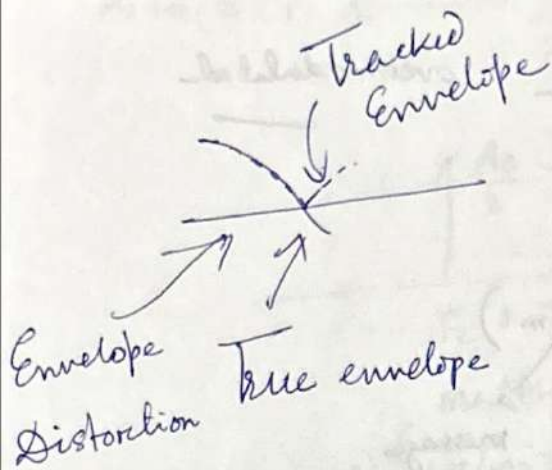 Tracked
Envelope
Envelope
Distortion
True envelope